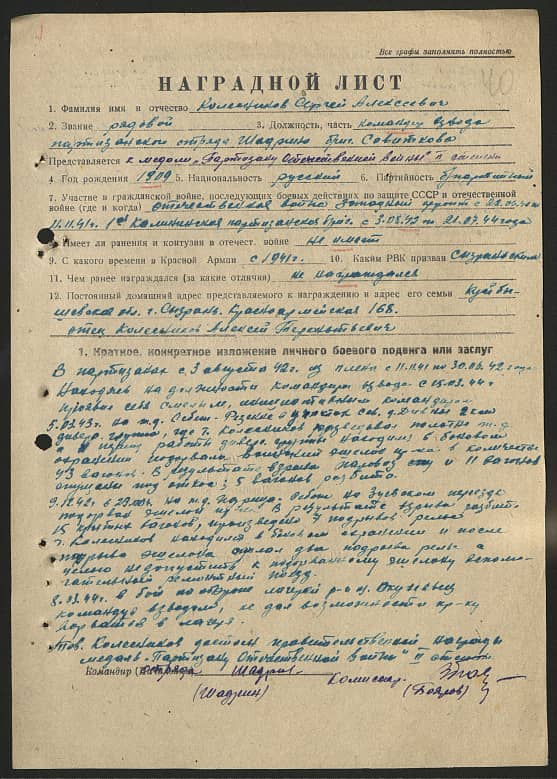 Все графы заполнять полностью
40
НАГРАДНОЙ ЛИСТ
1. Фамилия имя и отчество Колесников Сергей Алексеевич
2. Звание рядовой 3. Должность, часть командир взвода
партизанского отряда Шадрина бриг.
Представляется к медали „Партизану Отечественной войны" II степени
4. Год рождения 1909 5. Национальность русский 6. Партийность б/партийный
7. Участие в гражданской войне, последующих боевых действиях по защите СССР и отечественной
войне (где и когда) отечественная война Западный фронт с
11.11.41г. 1ая Калининская партизанская бриг. с 3.08.42 по 21.07.44 года
8. Имеет ли ранения и контузии в отечест. войне не имеет
9. С какого времени в Красной Армии с 1941г. 10. Каким РВК призван Сызранским
11. Чем ранее награждался (за какие отличия) не награждался
12. Постоянный домашний адрес представляемого к награждению и адрес его семьи Куйбы-
шевская обл. г. Сызрань, Красноармейская 165.
отец Колесников Алексей
1. Краткое, конкретное изложение личного боевого подвига или заслуг
В партизанах с 3 августа 42г. из плена с 11.11.41 по 30.06.42 года
Находясь на должности командира взвода с 15.03.44г
проявил себя смелым, инициативным командиром
5.03.43г. на ж.д. Себеж - участок
дивер. группы, где т. Колесников полотно ж.д.
и работы дивер. группы находился в боковом
охранении подорвали эшелон пр-ка в количестве
43 вагонов. В результате взрыва паровоз и 11 вагонов
пущены под откос и 5 вагонов разбито.
9.12.42 в на ж.д. Идрица - Себеж на переезде
подорвал эшелон В результате взрыва разбито
15 крытых вагонов, произведено 4 подрывов рельс
т. Колесников находился в боковом охранении и после
подрыва эшелона сделал два подрыва рельс а
не допустить к подорванному эшелону вспомо-
гательный ремонтный поезд.
8.03.44г в бой по обороне лагеря р-н
командуя взводом, не дал возможности пр-ку
ворваться в лагерь.
Тов. Колесников достоин правительственной награды
медаль „Партизану Отечественной войны" II степени
Командир отряда Шадрин
(Шадрин)
Комиссар
(Бояров)